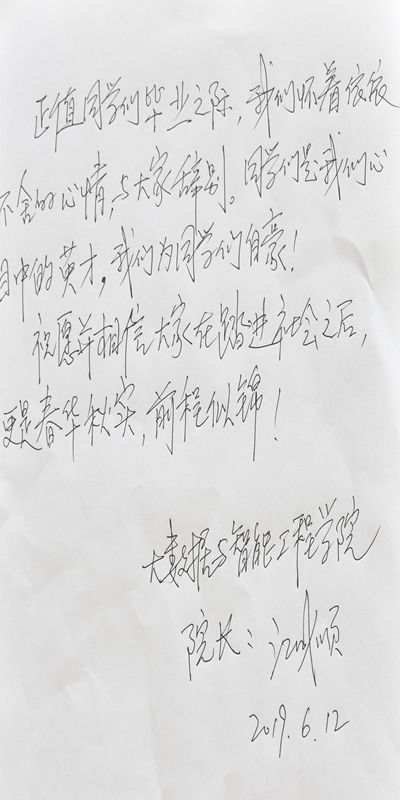 正值同学们毕业之际，我们怀着依依
不舍的心情，与大家辞别。同学们是我们心
目中的英才，我们为同学们自豪！
祝愿并相信大家在踏进社会之后，
更是春华秋实，前程似锦！
大数据与智能工程学院
院长：江顺
2019.6.12